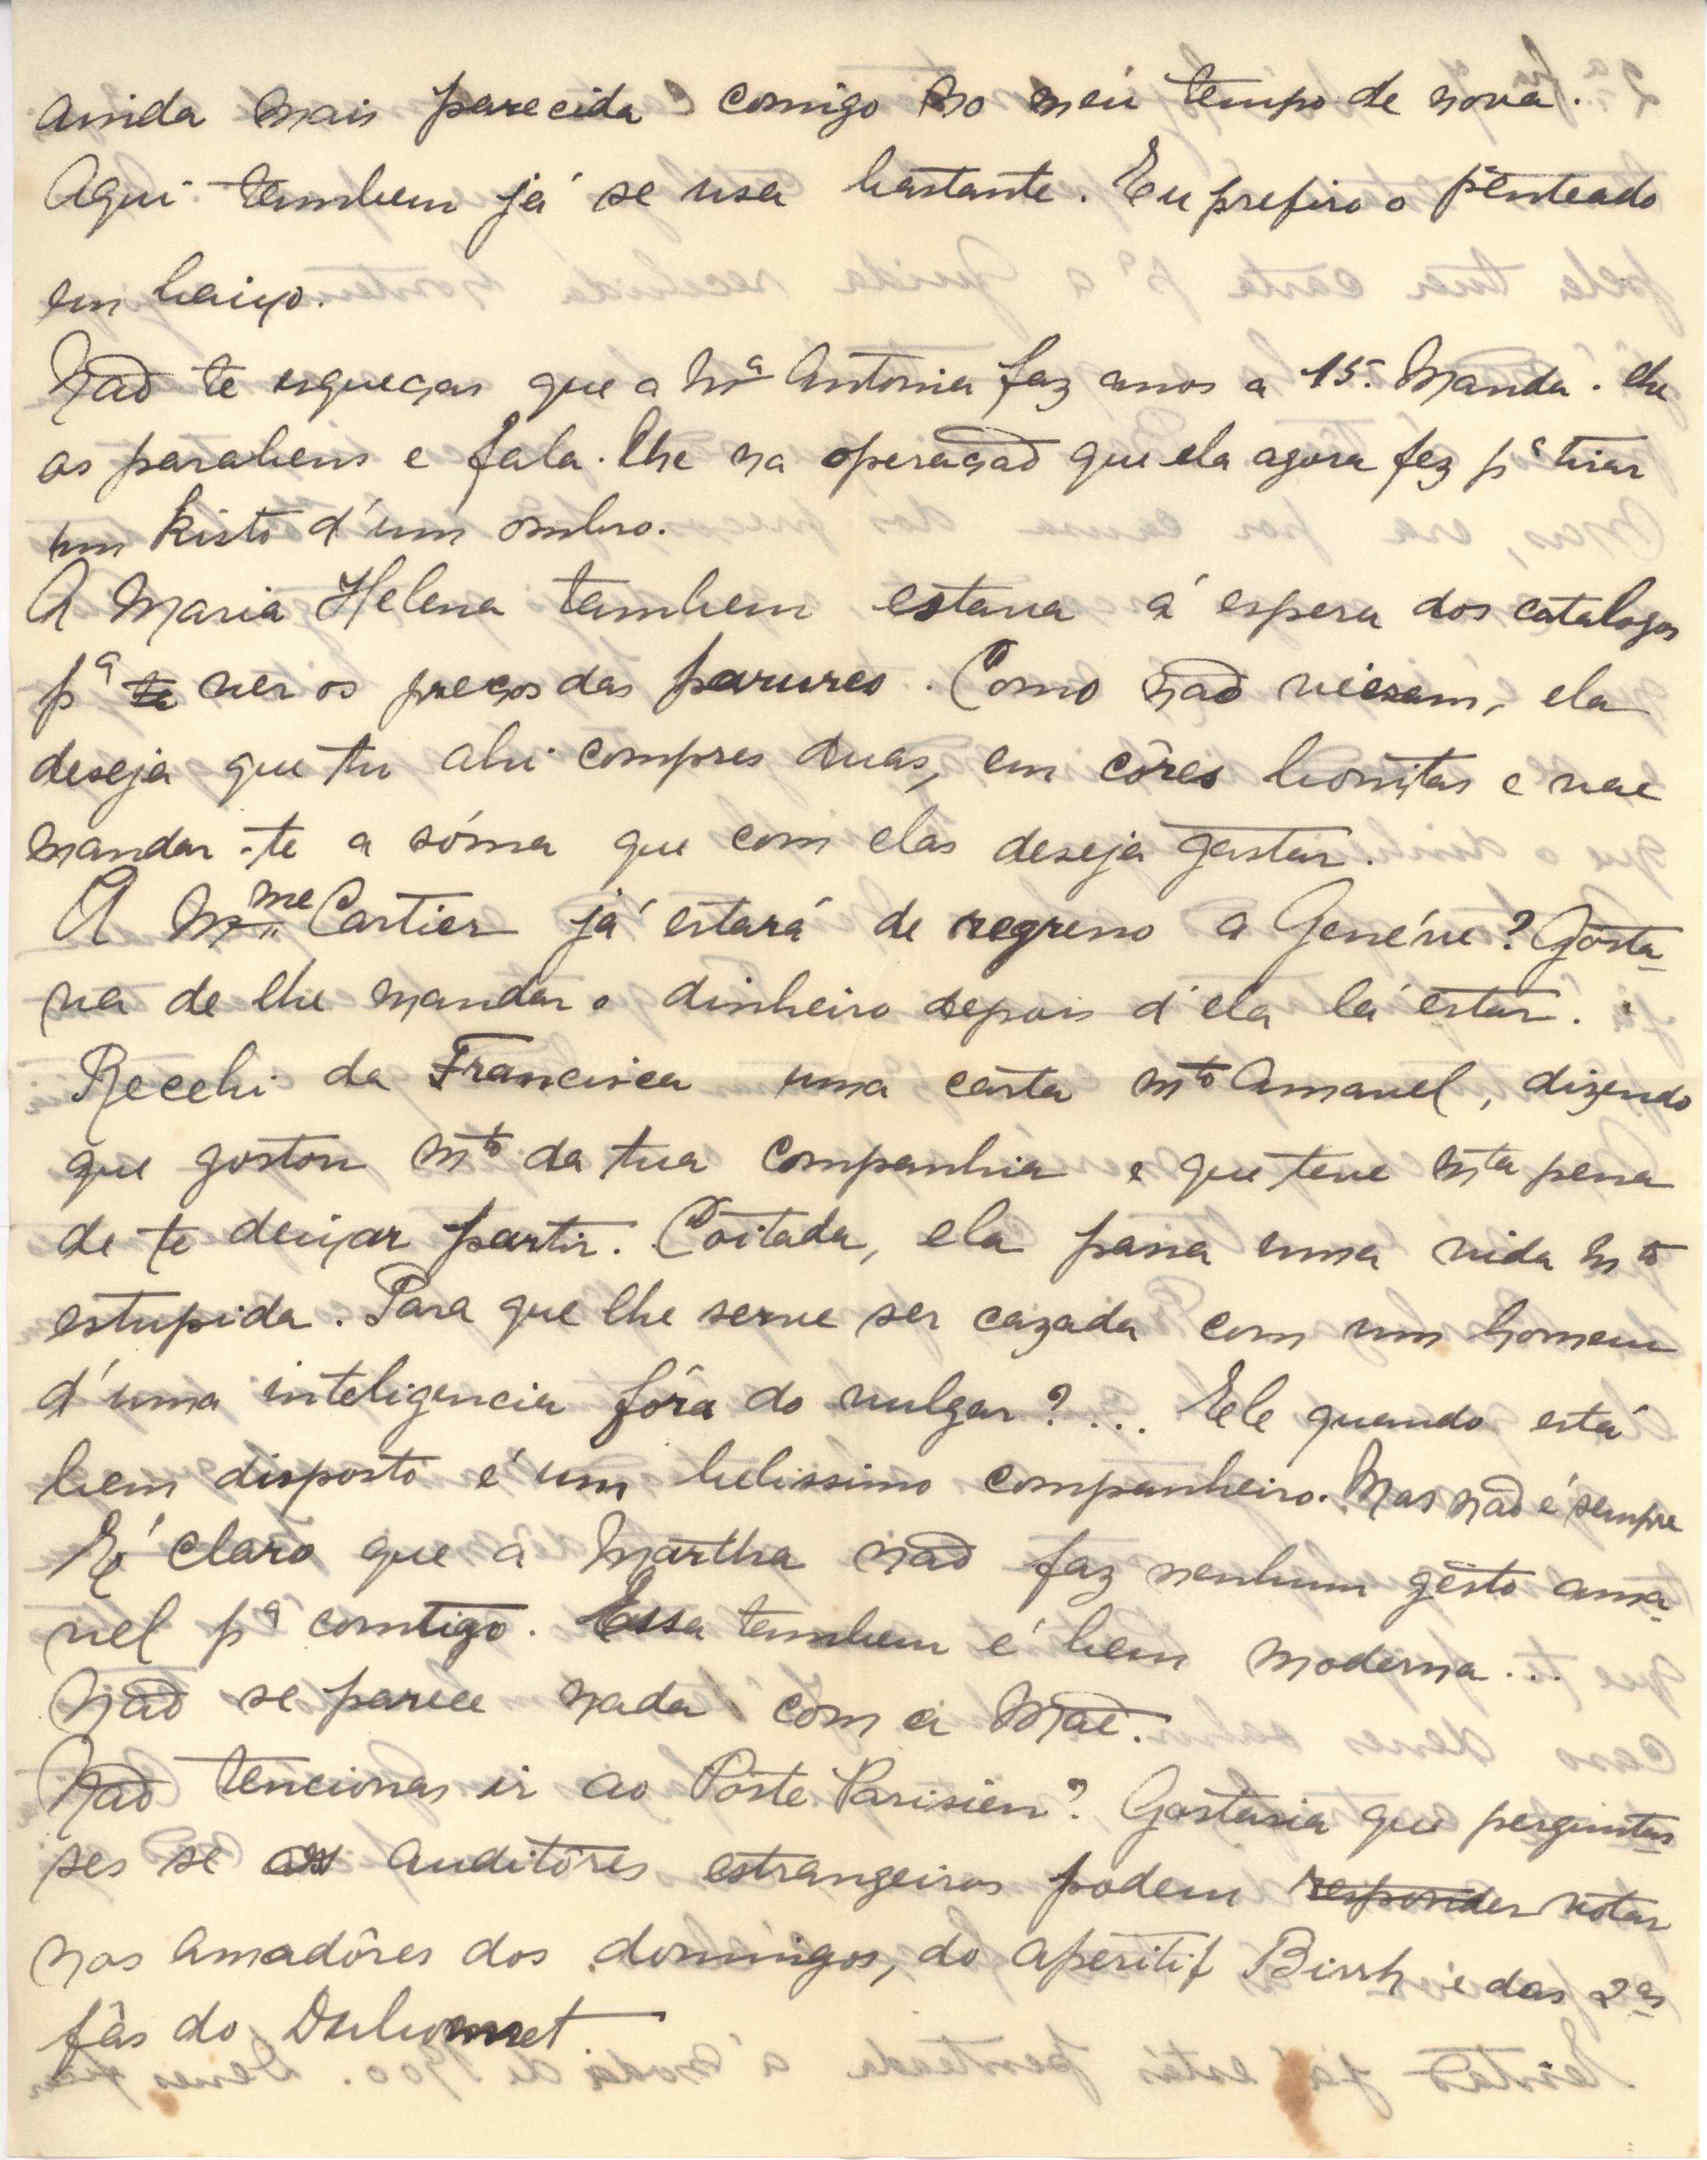 ainda mais parecida comigo no meu tempo de nova.
Aqui tambem já se usa bastante. Eu prefiro o penteado
em baixo.
Não te esqueças que a Mª Antonia faz anos a 15. Manda-lhe
os parabens e fala-lhe na operação que ela agora fez pª tirar
um kisto d'um ombro.
A Maria Helena tambem estava á espera dos catalogos
pª te ver os preços das parures. Como não vieram, ela
deseja que tu ahi compres duas, em côres bonitas e vae
mandar-te a sóma que com elas deseja gastar.
A Mme Cartier já estará de regresso a Genéve? Gosta-
va de lhe mandar o dinheiro depois d'ela lá estar.
Recebi da Francisca uma carta mto amavel, dizendo
que gostou mto da tua companhia e que teve mta pena
de te deixar partir. Coitada, ela passa uma vida mto
estupida. Para que lhe serve ser cazada com um homem
d'uma inteligencia fóra do vulgar?... Ele quando está
bem disposto é um belissimo companheiro. Mas não é sempre
É claro que a Martha não faz nenhum gesto ama-
vel pª comtigo. Essa tambem é bem moderna...
Não se parece nada com a Mãe.
Não tencionas ir ao Poste Parisien? Gostaria que perguntas-
ses se os auditôres estrangeiros podem responder votar
nos amadôres dos domingos, do aperitif Birrh e das 2as
fªs do Dubonnet.